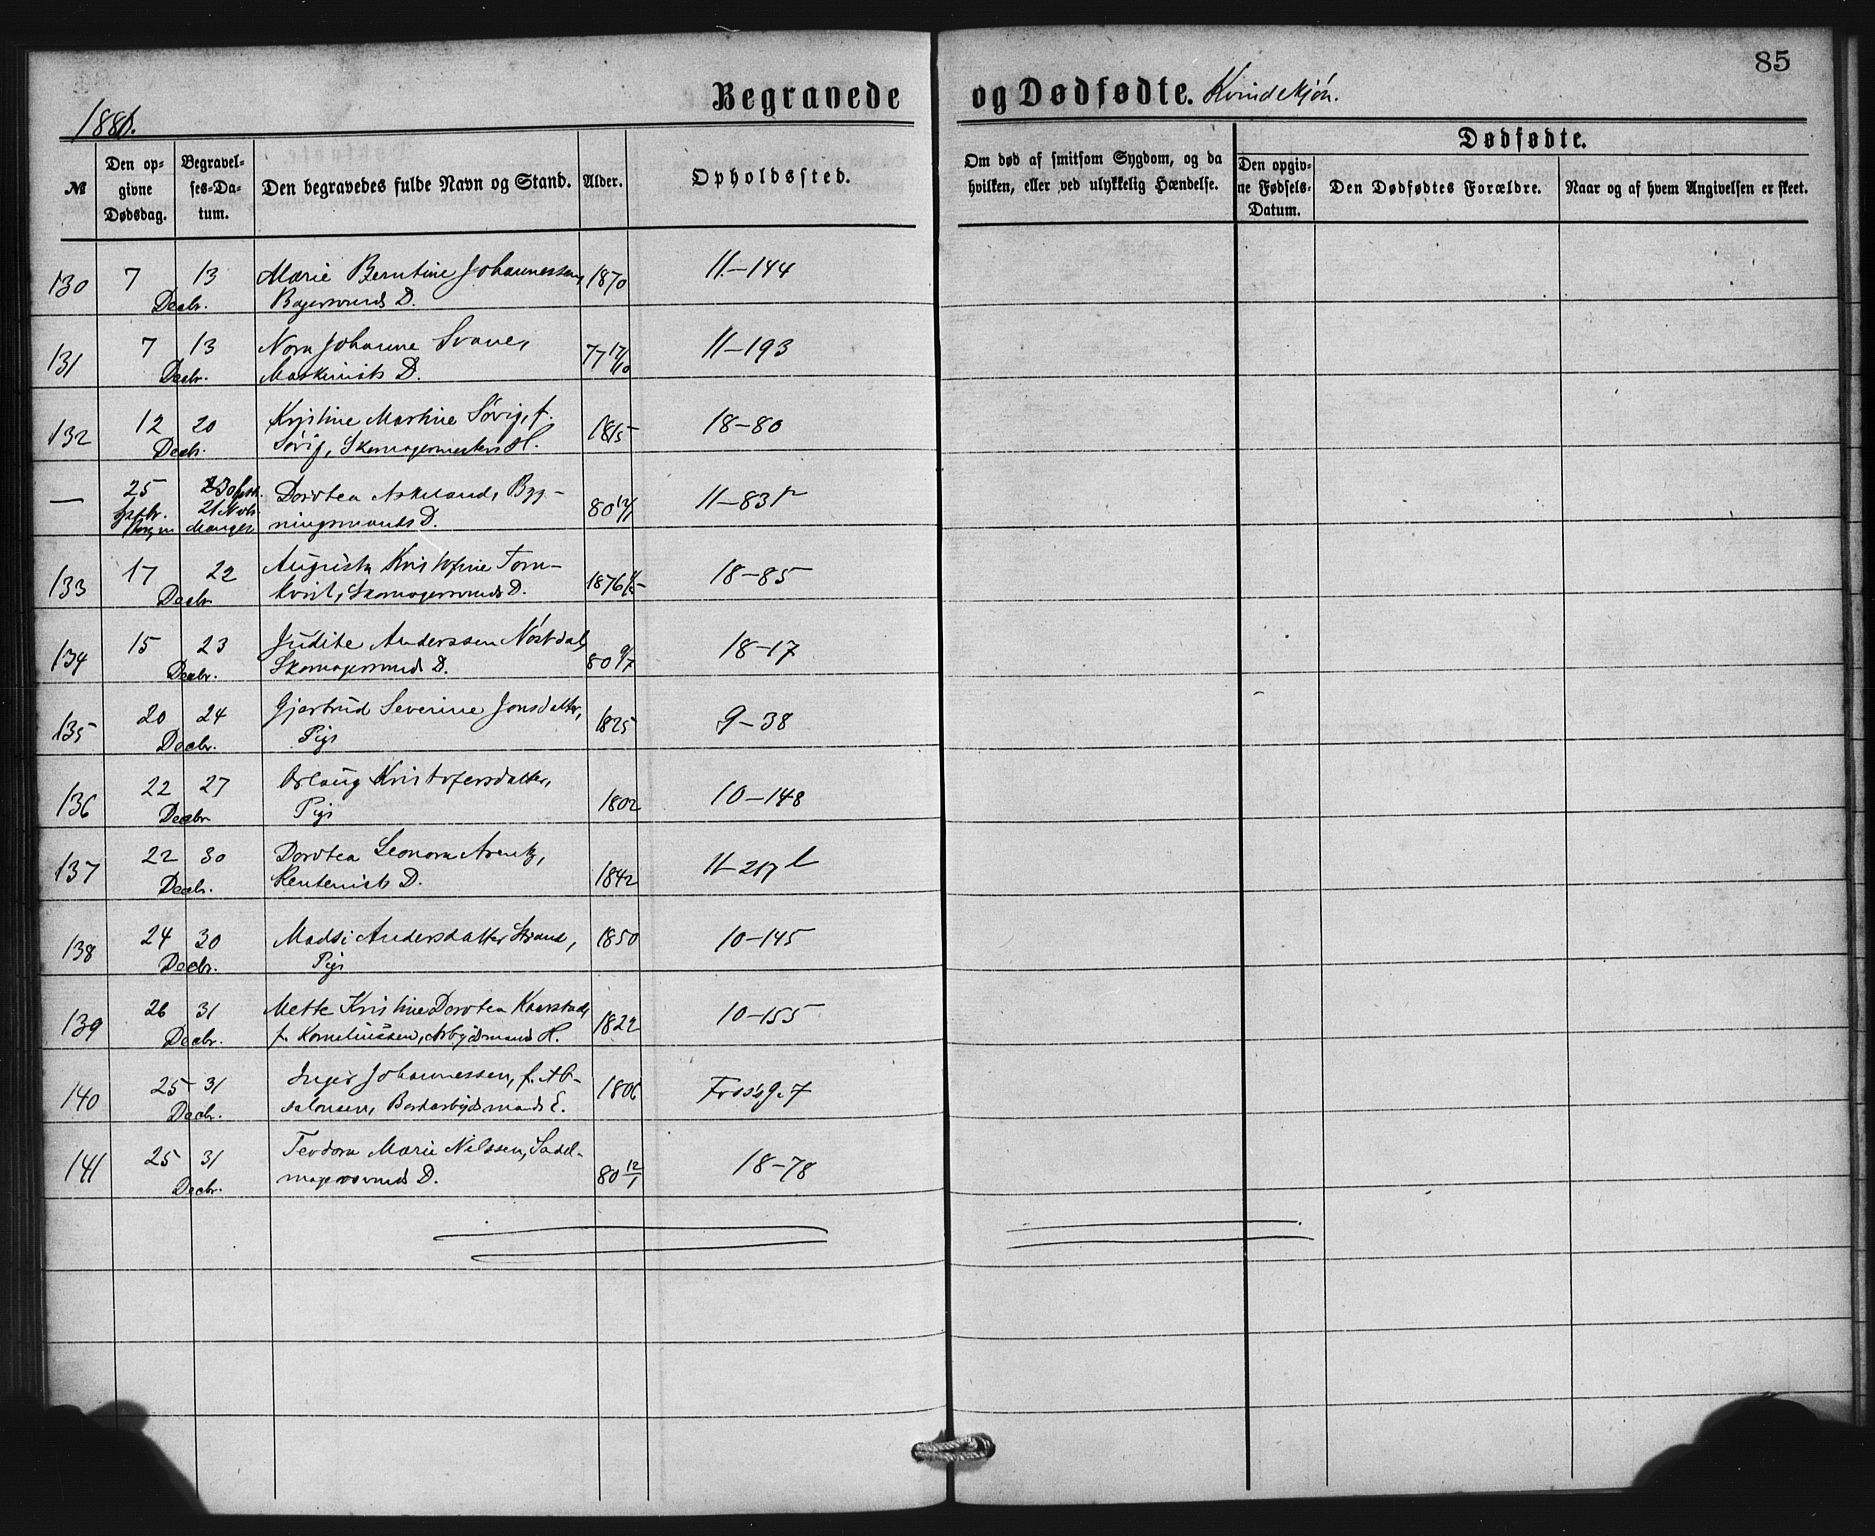 85
Begravede og Dødfødte. Kvindekjøn.
1881.
Dødfødte.
№
Den opgivne Dødsdag.
Begravelses-Datum.
Den begravedes fulde Navn og Stand.
Alder.
Opholdssted.
Om død af smitsom Sygdom, og da hvilken, eller ved ulykkelig Hændelse.
Den opgivne Fødsels-Datum.
Den Dødfødtes Forældre.
Naar og af hvem Angivelsen er skeet.
130 7 13 Marie Berntine Johannessen, 1870 11-144
Decbr. Bagersvends D.
131 7 13 Nora Johanne Svane, 77 17/10 11-193
Decbr. Maskinists D.
132 12 20 Kristine Martine Søvig, f. 1815 18-80
Decbr. Søvig, Skomagermesters H.
— 25 Dorotea Askeland, Byg- 80 11-83
ningsmands D.
133 17 22 Augusta Kristofine Torn- 1876 18-85
Decbr. kvist, Skomagersvends D.
134 15 23 Judite Anderssen Nöstdal, 80 9/7 18-17
Decbr. Skomagersvends D.
135 20 24 Gjertrud Severine Jonsdatter, 1825 9-38
Decbr. Pige
136 22 27 Aslaug Kristofersdatter, 1802 10-148
Decbr. Pige
137 22 30 Dorotea Leonora Arentz, 1842 11-217
Decbr. Rentenists D.
138 24 30 Madsi Andersdatter Strand, 1850 10-145
Decbr. Pige
139 26 31 Mette Kristine Dorotea Kaarstad, 1822 10-155
Decbr. f. Korneliussen, Arbejdsmands H.
140 25 31 Inger Johannessen, f. Ab- 1806 Fossg. 7
Decbr. salonsen, Bordarbejdsmands E.
141 25 31 Teodora Marie Nilssen, Sadel- 80 12/1 18-78
Decbr. magersvends D.